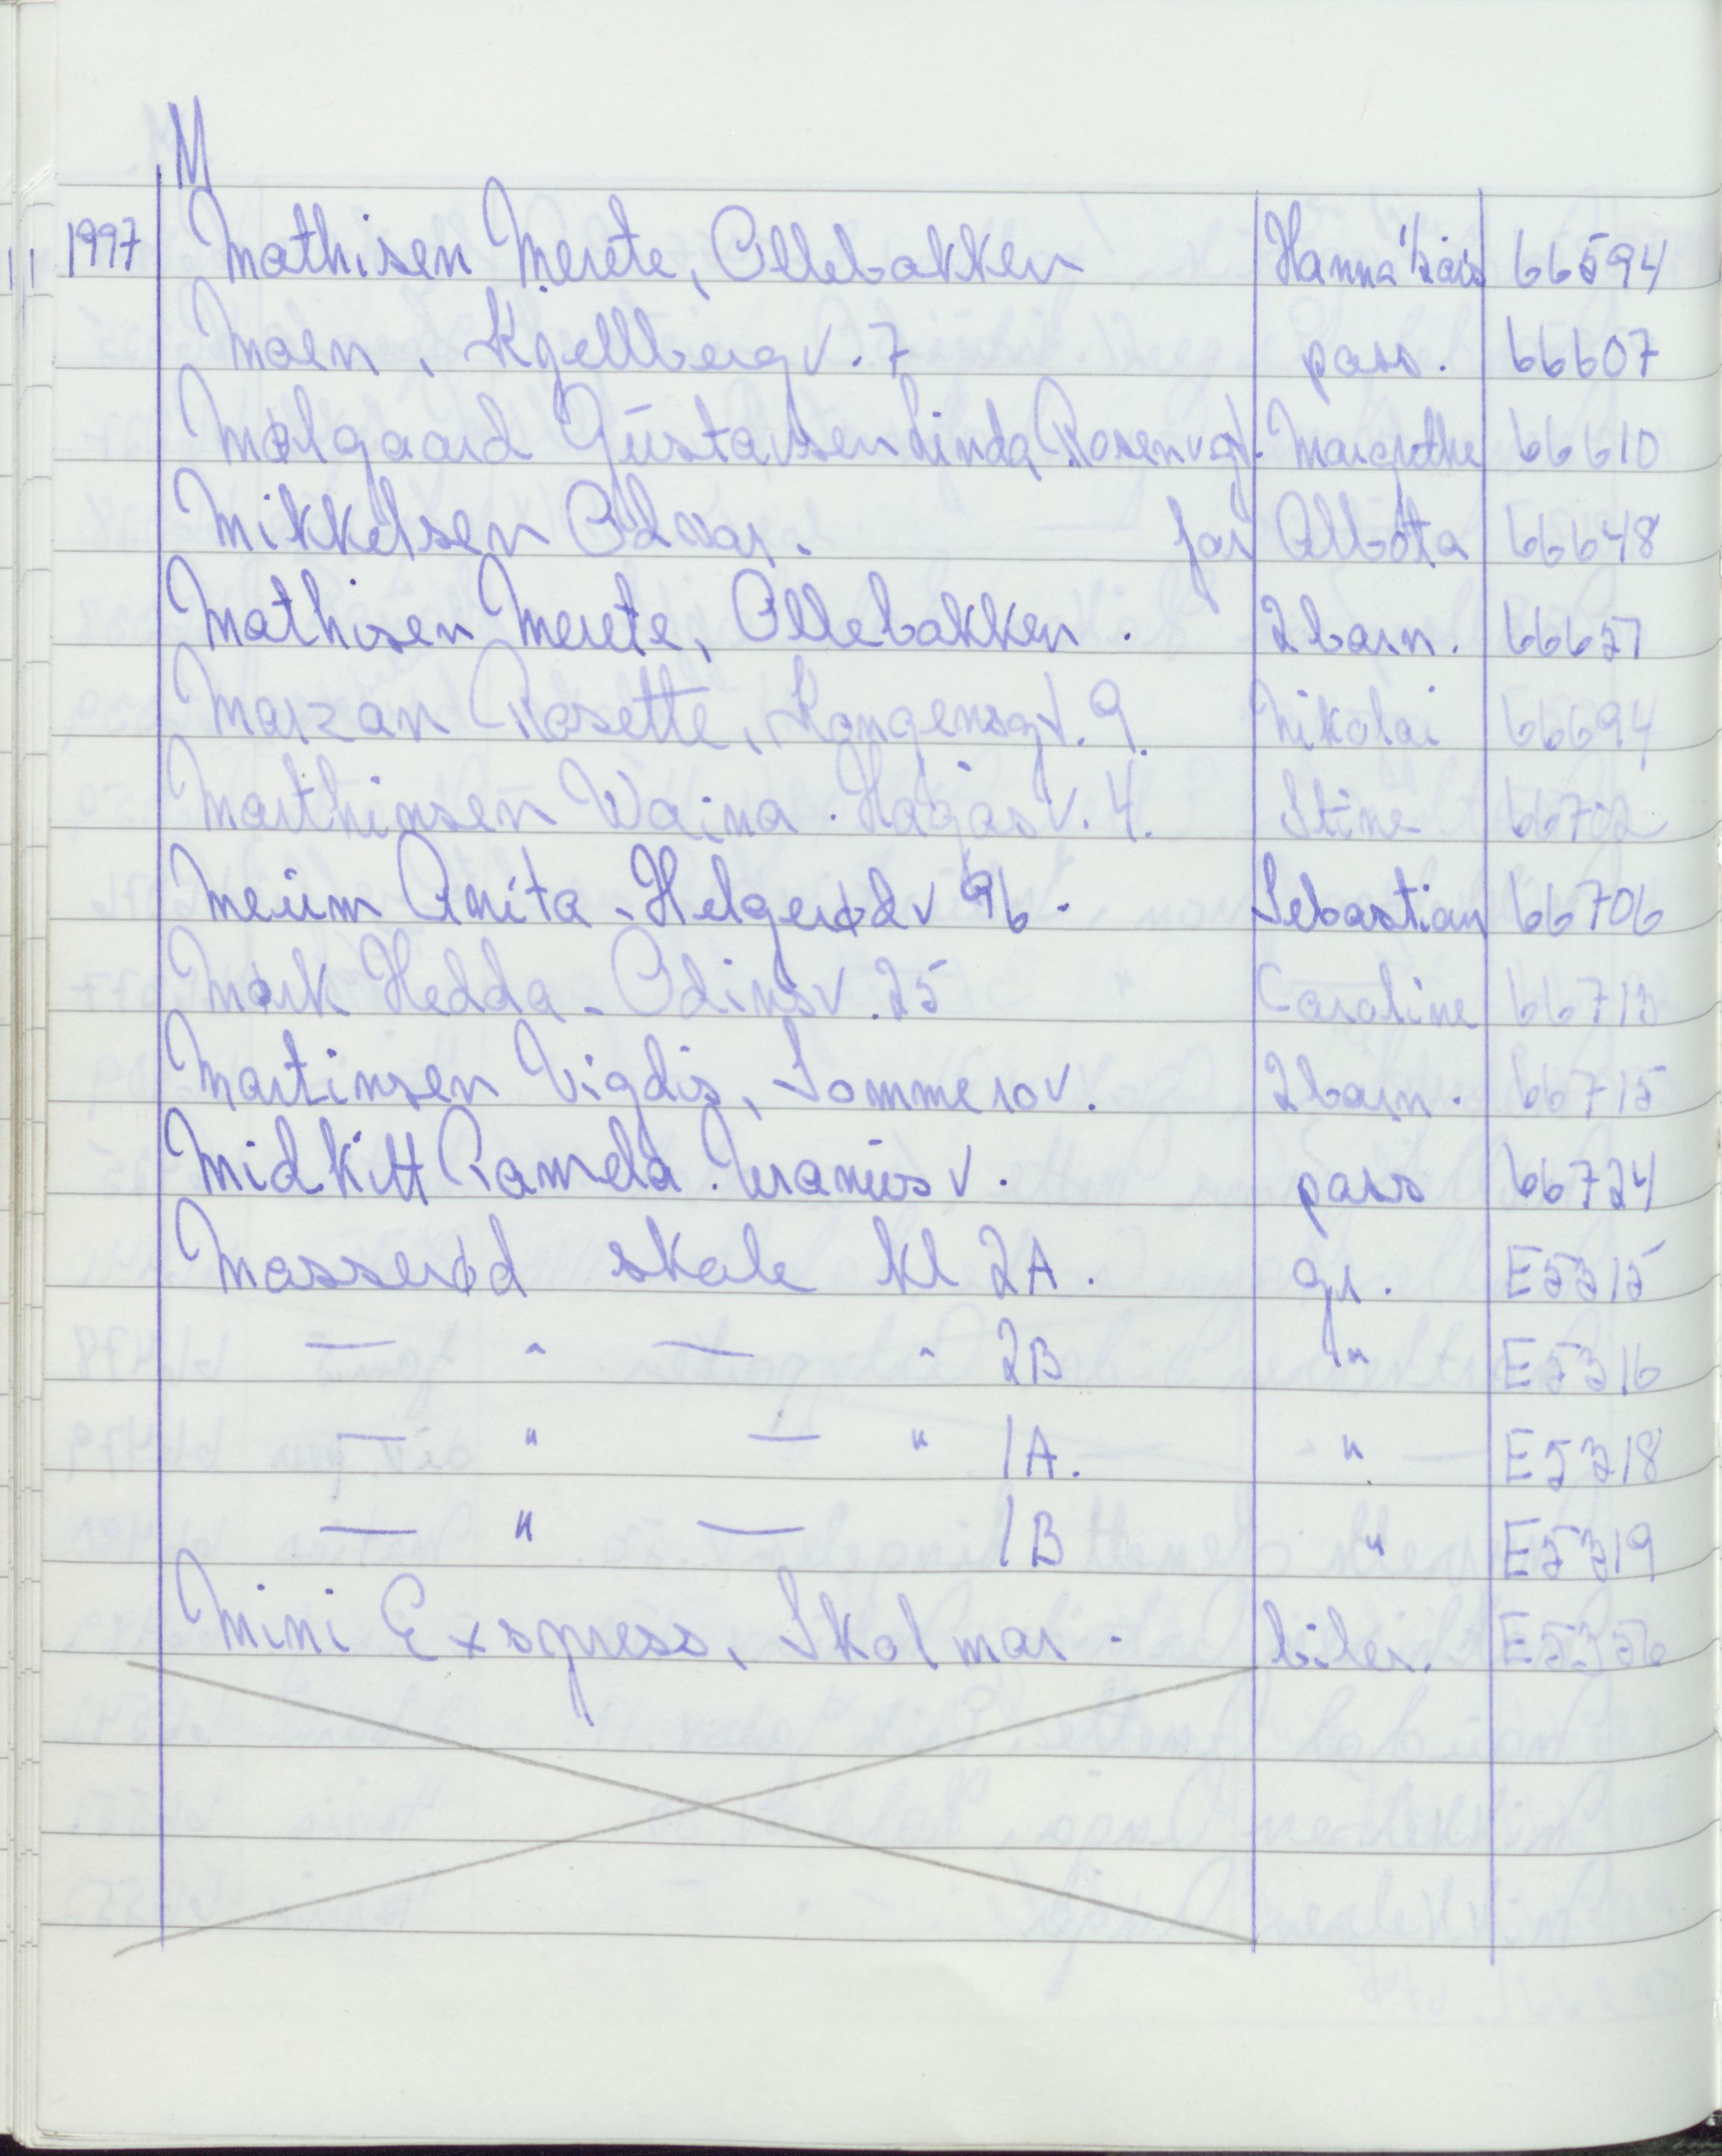 M
1997 Mathisen Merete, Ollebakken Hanna 1/2 års 66594
Moen, Kjellbergv. 7 pass. 66607
Mølgaard Gustavsen Linda Rosenvgt. Margrethe 66610
Mikkelsen Oddvar. for Abbota 66648
Mathisen Merete, Ollebakken. 2 barn. 66651
Marzan Rosette, Kongensgt. 9. Nikolai 66694
Marthinsen Waina. Hagasv. 4. Stine 66702
Meum Anita - Helgerødv 96. Sebastian 66706
Mørk Hedda - Odinsv. 25 Caroline 66713
Martinsen Vigdis, Sommerov. 2 barn. 66715
Midkitt Pamela. Uranusv. pass 66724
Mosserød skole kl 2A. gr. E5315
— " — " 2B " E5316
— " — " 1A. " E5318
— " — 1B " E5319
Mini Exspress, Skolmar. biler. E5356